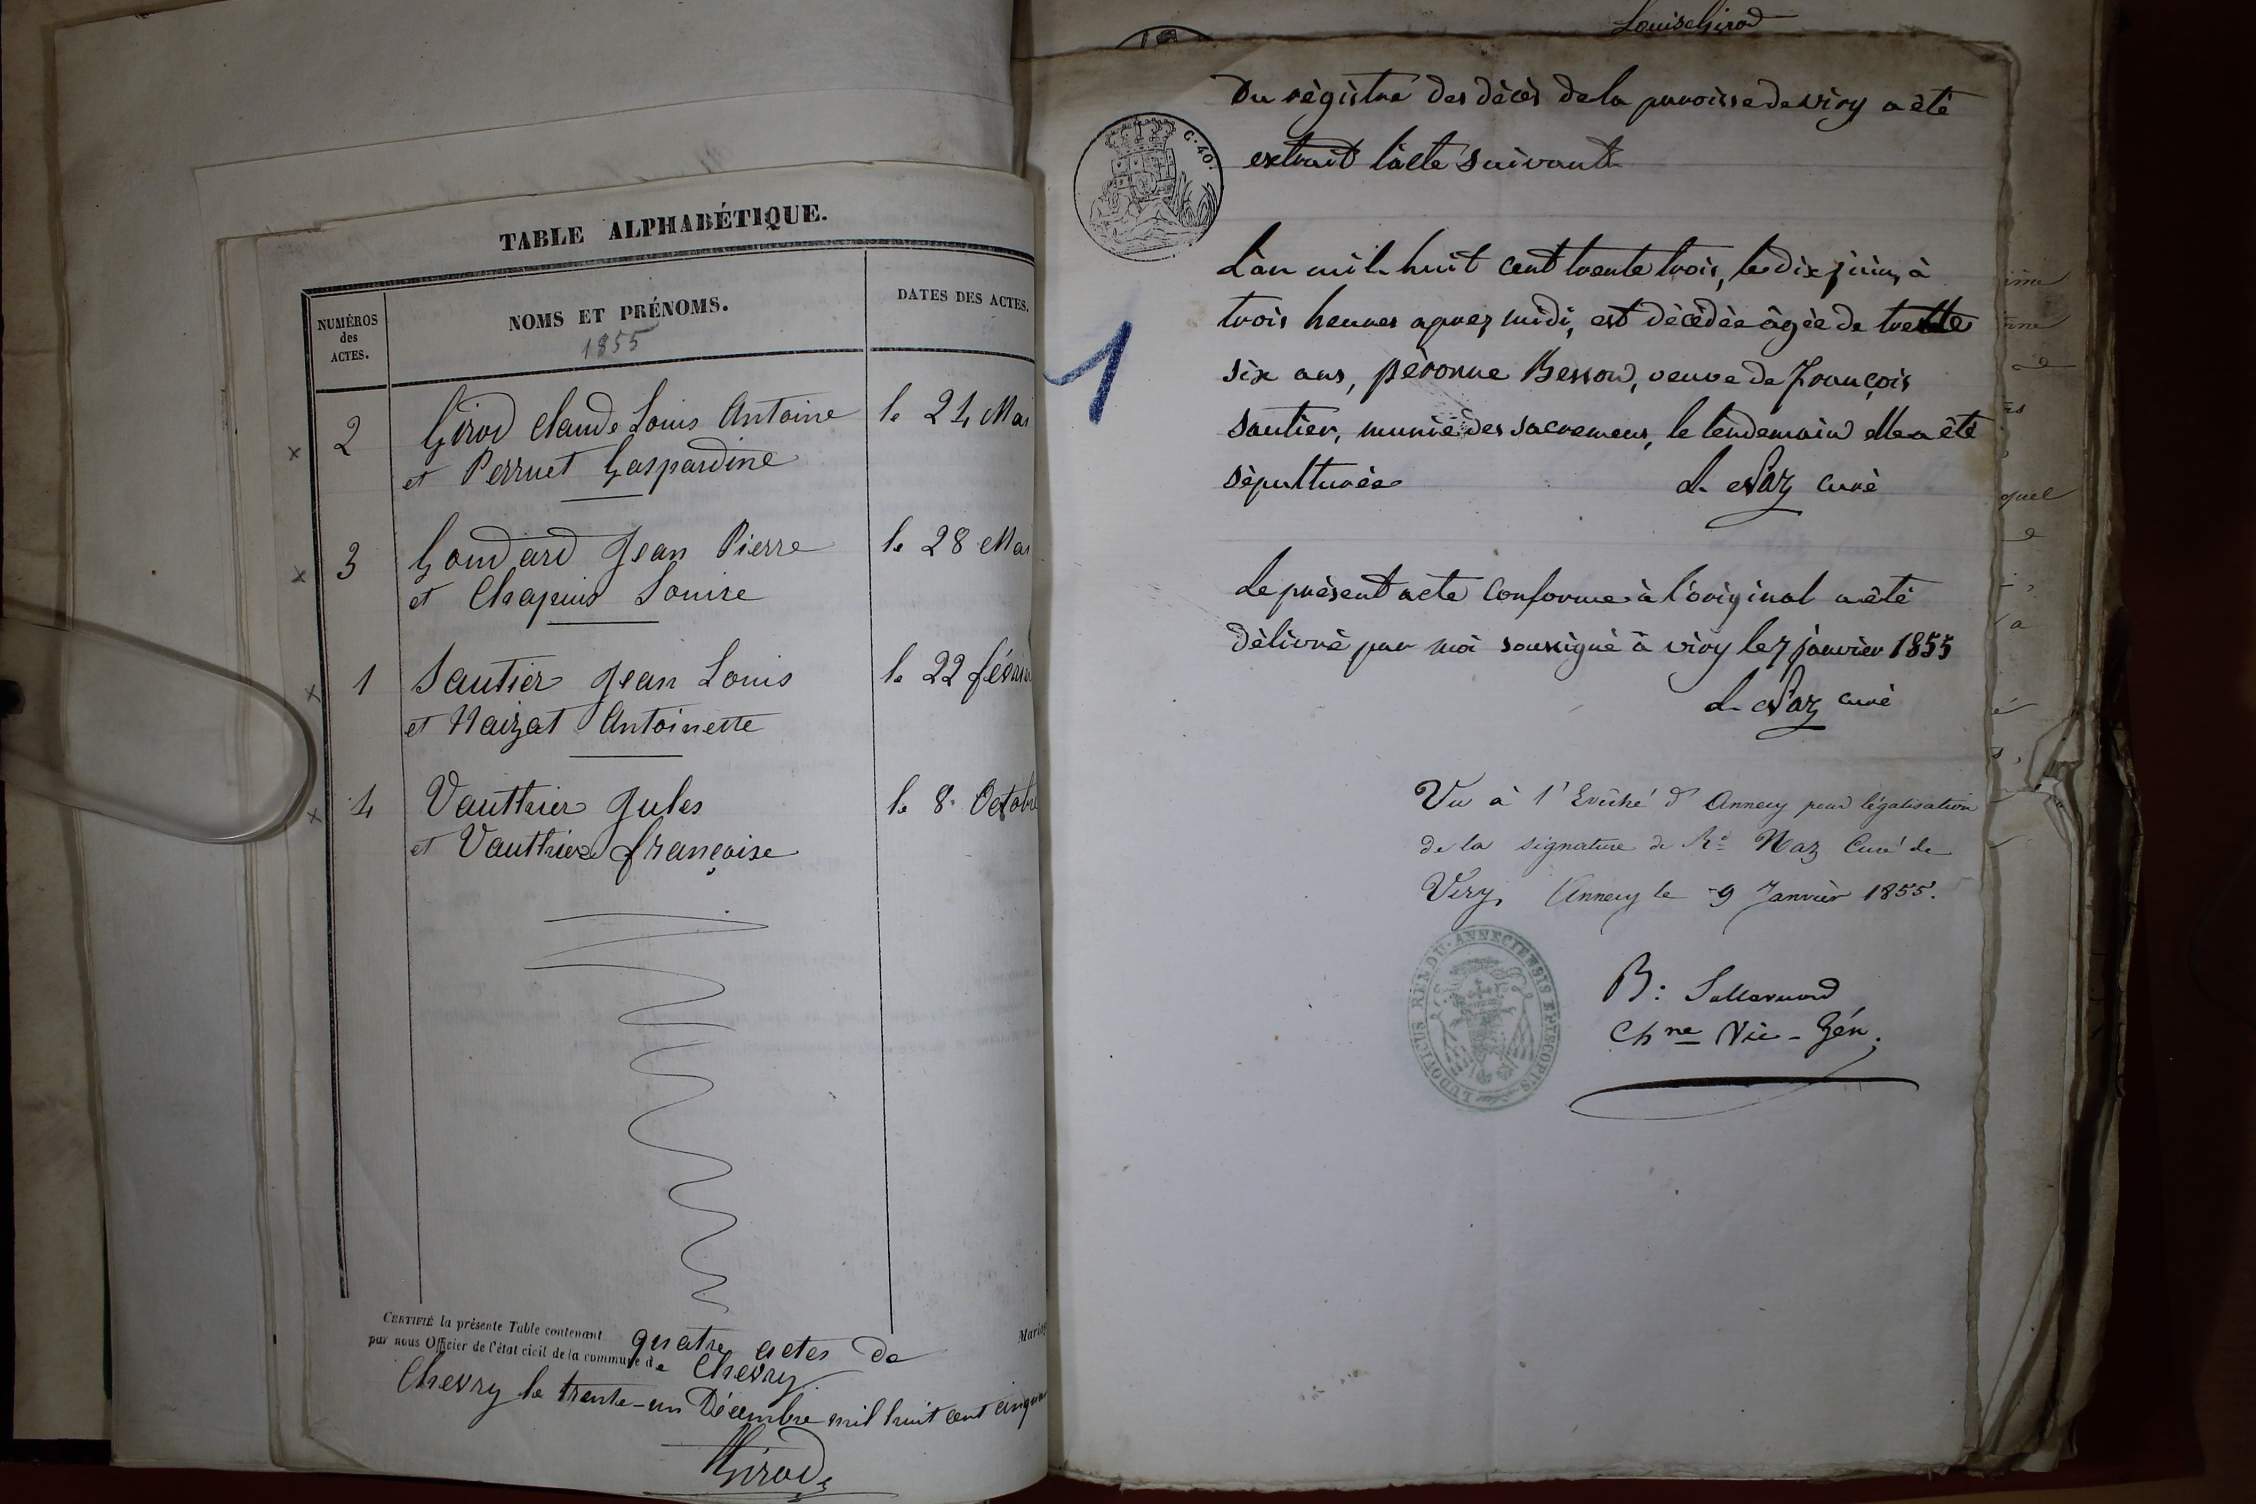 TABLE ALPHABÉTIQUE.
NUMÉROS
des
ACTES.
NOMS ET PRÉNOMS.
1855
DATES DES ACTES.
x 2 Girod Claude Louis Antoine le 24 Mai
et Perruet Gaspardine
x 3 Goudard Jean Pierre le 28 Mai
et Chapuis Louise
x 1 Sautier Jean Louis le 22 février
et Naizat Antoinette
x 4 Vauthier Jules le 8 Octobre
et Vauthier françoise
CERTIFIÉ la présente Table contenant quatre actes de Mariag
par nous Officier de l'état civil de la commune de Chevry
Chevry le trente-un Décembre mil huit cent cinqua
Girod
Louis Girod
Du règistre des décès de la paroisse de viry a été
extrait l'acte suivant
C. 40.
1
L'an mil huit cent trente trois, le dix juin, à
trois heures aprez midi, est décédée âgée de trente
six ans, péronne Besson, veuve de françois
sautier, munie des sacremens, le lendemain elle a été
sépulturée
L. Naz curé
Le présent acte conforme à l'original a été
délivré par moi soussigné à viry le 7 janvier 1855
L. Naz curé
Vu à l'Evêché d'Annecy pour légalisation
de la signature de Rd Naz Curé de
Viry, Annecy le 9 Janvier 1855.
LUDOVICUS RENDU ANNECIENSIS EPISCOPUS
B: Sallavuard
Chne Vic-Gén.
quel